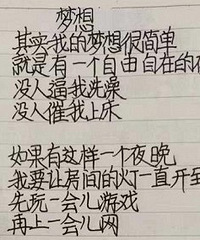 梦想
其实我的梦想很简单
就是有一个自由自在的
没人逼我洗澡
没人催我上床
如果有这样一个夜晚
我要让房间的灯一直开
先玩一会儿游戏
再上一会儿网